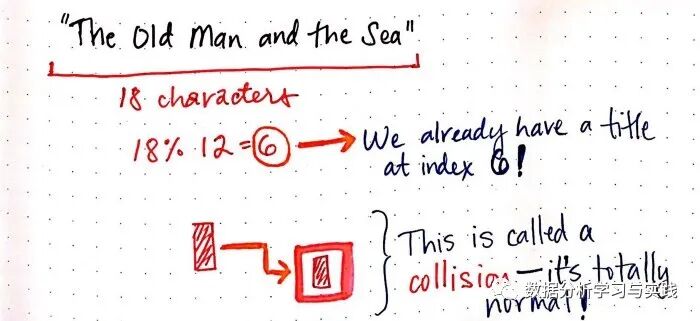 "The Old Man and the Sea"
18 characters
18% 12 = 6
We already have a title
at index 6!
This is called a
collision—it's totally
normal!
数据分析学习与实践